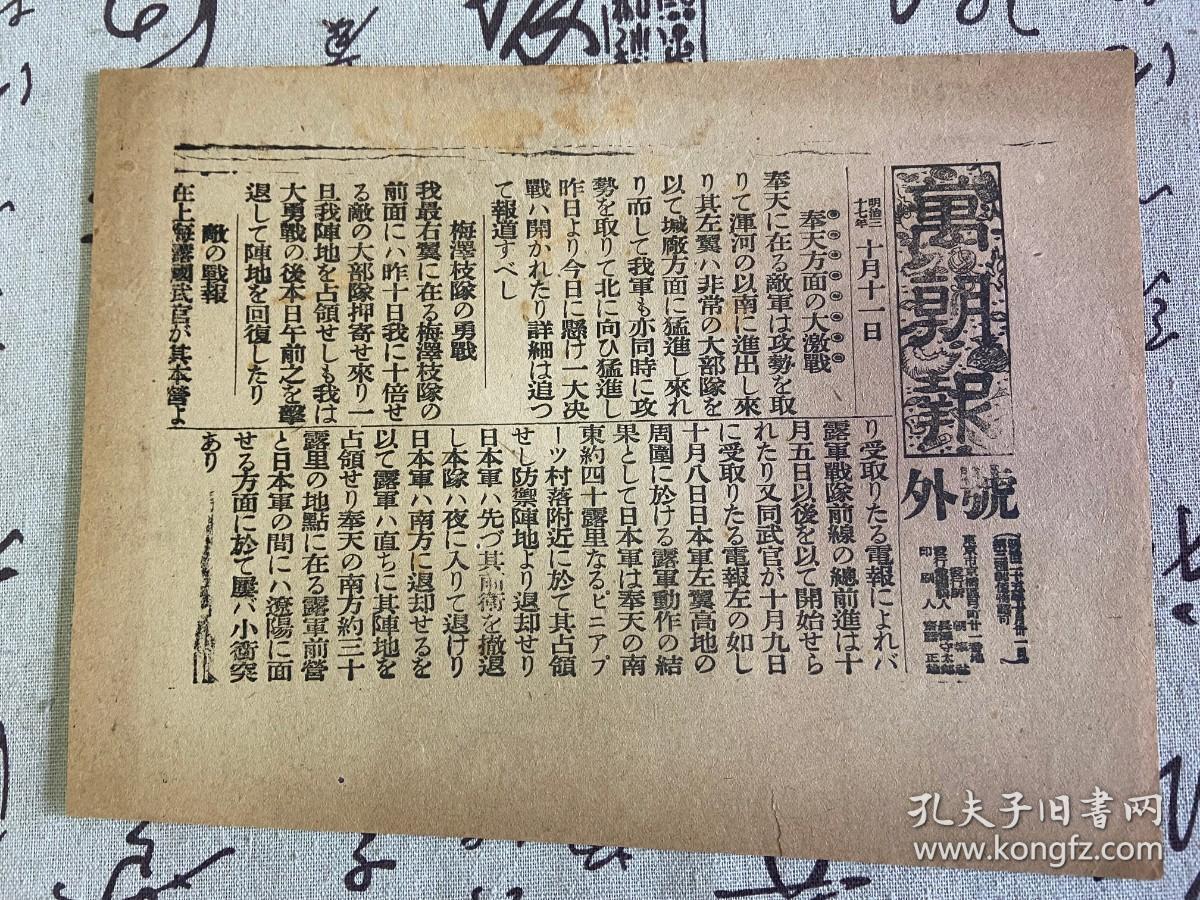 萬朝報
號外
東京市京橋區
發行所 朝報社
印刷人
明治三十七年 十月十一日
奉天方面の大激戰
奉天に在る敵軍は攻勢を取
りて渾河の以南に進出し來
り其左翼ハ非常の大部隊を
以て城廠方面に猛進し來れ
り而して我軍も亦同時に攻
勢を取りて北に向ひ猛進し
昨日より今日に懸け一大決
戰ハ開かれたり詳細は追つ
て報道すべし
梅澤枝隊の勇戰
我最右翼に在る梅澤枝隊の
前面にハ昨十日我に十倍せ
る敵の大部隊押寄せ來り一
旦我陣地を占領せしも我は
大勇戰の後本日午前之を擊
退して陣地を回復したり
敵の戰報
在上海露國武官が其本營よ
り受取りたる電報によれバ
露軍戰隊前線の總前進は十
月五日以後を以て開始せら
れたり又同武官が十月九日
に受取りたる電報左の如し
十月八日日本軍左翼高地の
周圍に於ける露軍動作の結
果として日本軍は奉天の南
東約四十露里なるビニアプ
ーツ村落附近に於て其占領
せし防禦陣地より退却せり
日本軍ハ先づ其前衛を撤退
し本隊ハ夜に入りて退けり
日本軍ハ南方に退却せるを
以て露軍ハ直ちに其陣地を
占領せり奉天の南方約三十
露里の地點に在る露軍前營
と日本軍の間にハ遼陽に面
せる方面に於て屢バ小衝突
あり
孔夫子旧书网
www.kongfz.com